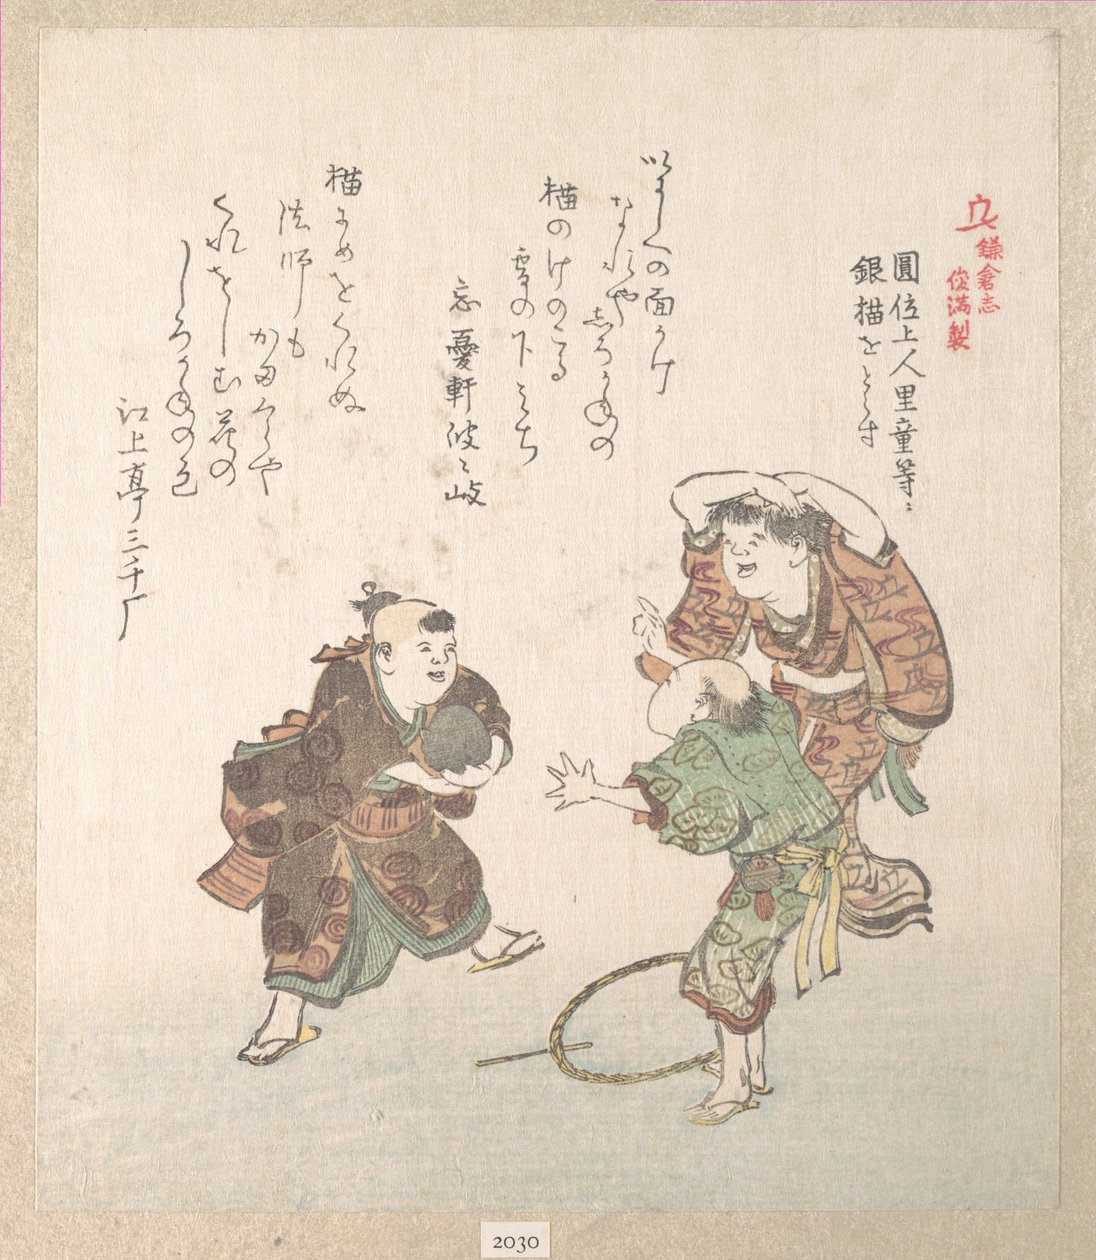 鎌倉志
俊満製
圓位上人里童等ニ
銀猫をとらす
いにしへの面かけ
なれや志ろかねの
猫のけのこる
雪の下みち
忘憂軒波ゝ岐
猫にめをくれぬ
法師も
かまくらや
くれをしむ花の
しろかねの色
江上亭三千
2030